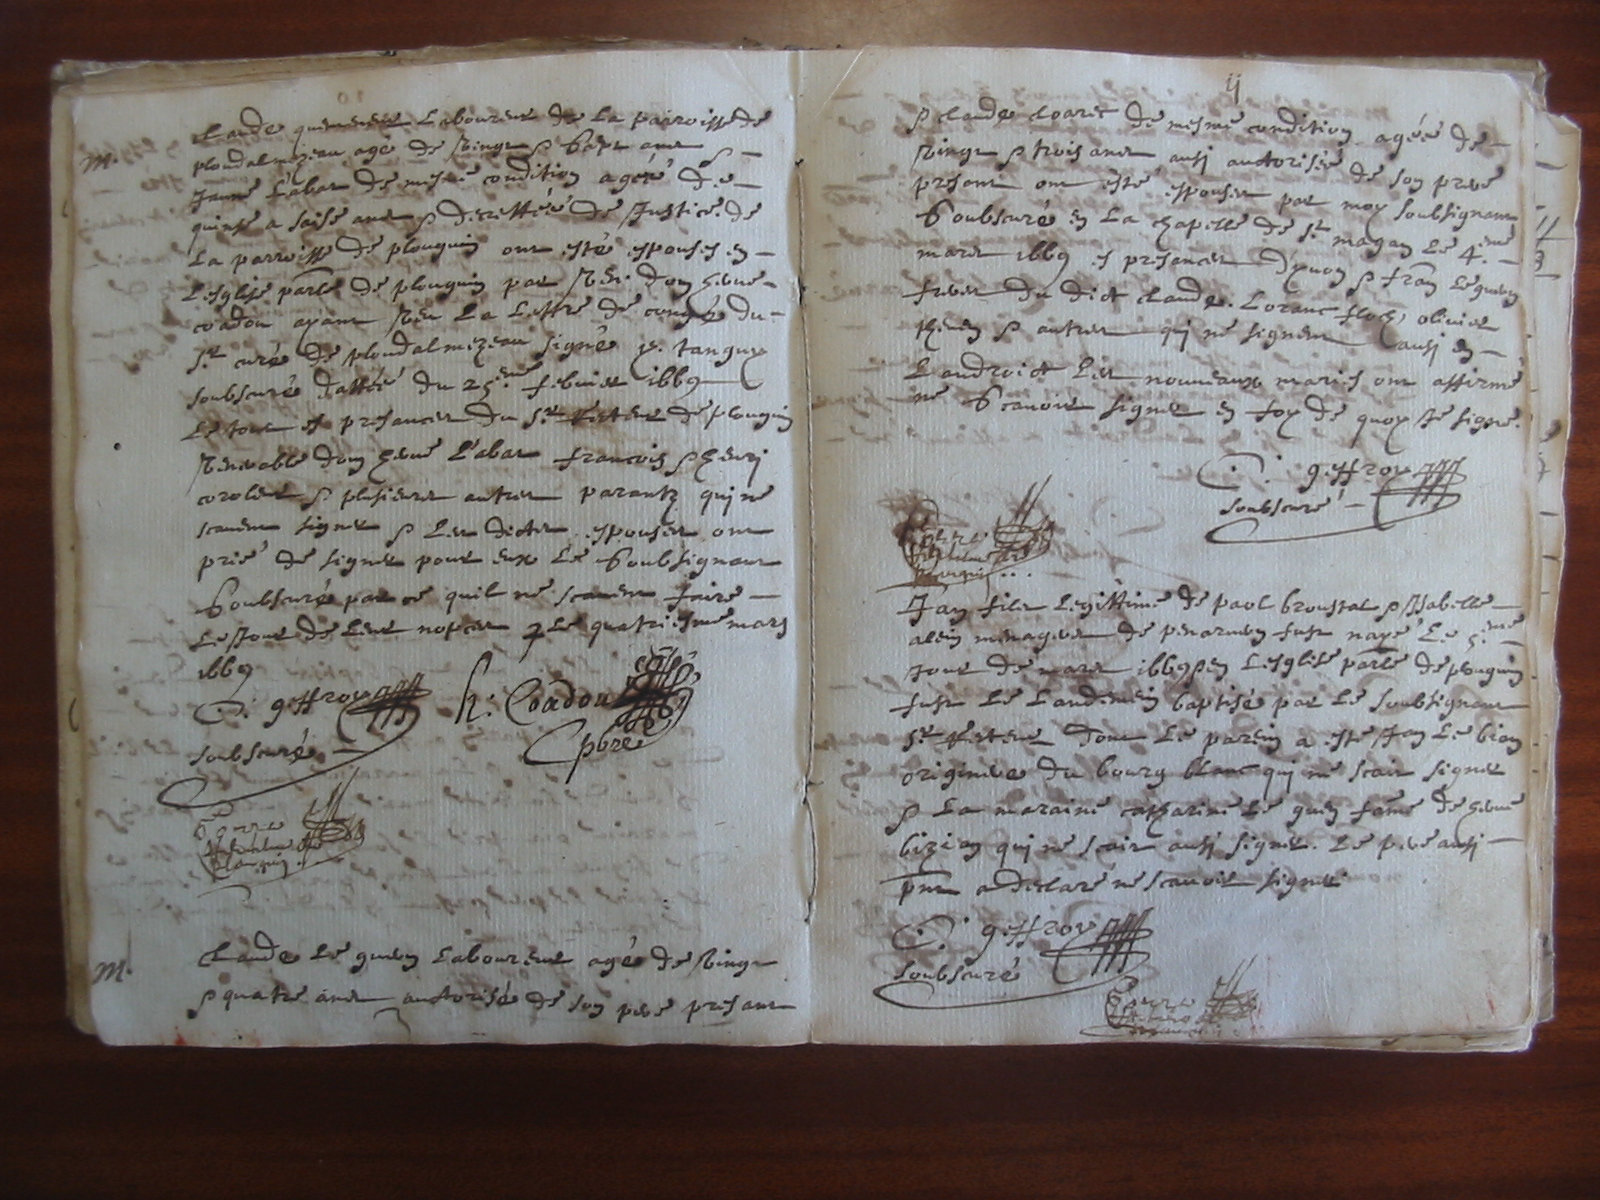 M.
Claude quemeneur Laboureur de La parroisse de
ploudalmezeau age de vingt & sept ans &
Janne Labat de mesme condition agéé de
quinse a saise ans & decrettéé de Justice de
La parroisse de plouguin ont esté espousés en
Lesglise parle de plouguin par Ven. dom herue
coadou ayant veu La Lettre de congé du
Sr curé de ploudalmezeau signé p. tanguy
soubscuré dattéé du 25eme febvier 1669
Le tout es presances du Sr Recteur de plouguin
Venerable dom herue Labat francois & henri
coroler & plusieurs autres parantz qui ne
scavent signer & Les dicts espouses ont
prié de signer pour eux Le Soubsignant
Soubscuré par ce quil ne scavent faire
Le Jour de Leur nopces Le quatriesme mars
1669
geffroy
soubscuré
h: Coadou
pbre
plouguin
M.
Claude Le guen Laboureur agé de vingt
& quatre ans auctorisé de son pere presant
ij
& claude cloarec de mesme condition agéé de
vingt & trois ans ausi auctoriséé de son pere
presant ont esté espouses par moy soubsignant
Soubscuré en La chapelle de St magan Le 4eme
mars 1669 es presances dyuon & fran Leguen
freres du dict claude. Lorans floch, olivier
& autres qui ne signent ausi en
Landroict Les nouveaux mariés ont affirmé
ne Scavoir signer en foy de quoy Je signe.
geffroy
soubscuré
Jan fils Legittime de paol broustal & Isabelle
menagers de penarvern fust nayé Le 5eme
Jour de mars 1669 en Lesglise parle de plouguin
fust Le Landemein baptisé par Le soubsignant
Sr Recteur dont Le parein a esté Jan Le bian
originere du bourg blanc qui ne scait signer
& La maraine catharine Le guen fame de herue
bizian qui ne scait ausi signer. Le pere ausi
pnt a declaré ne scavoir signer
geffroy
soubscuré